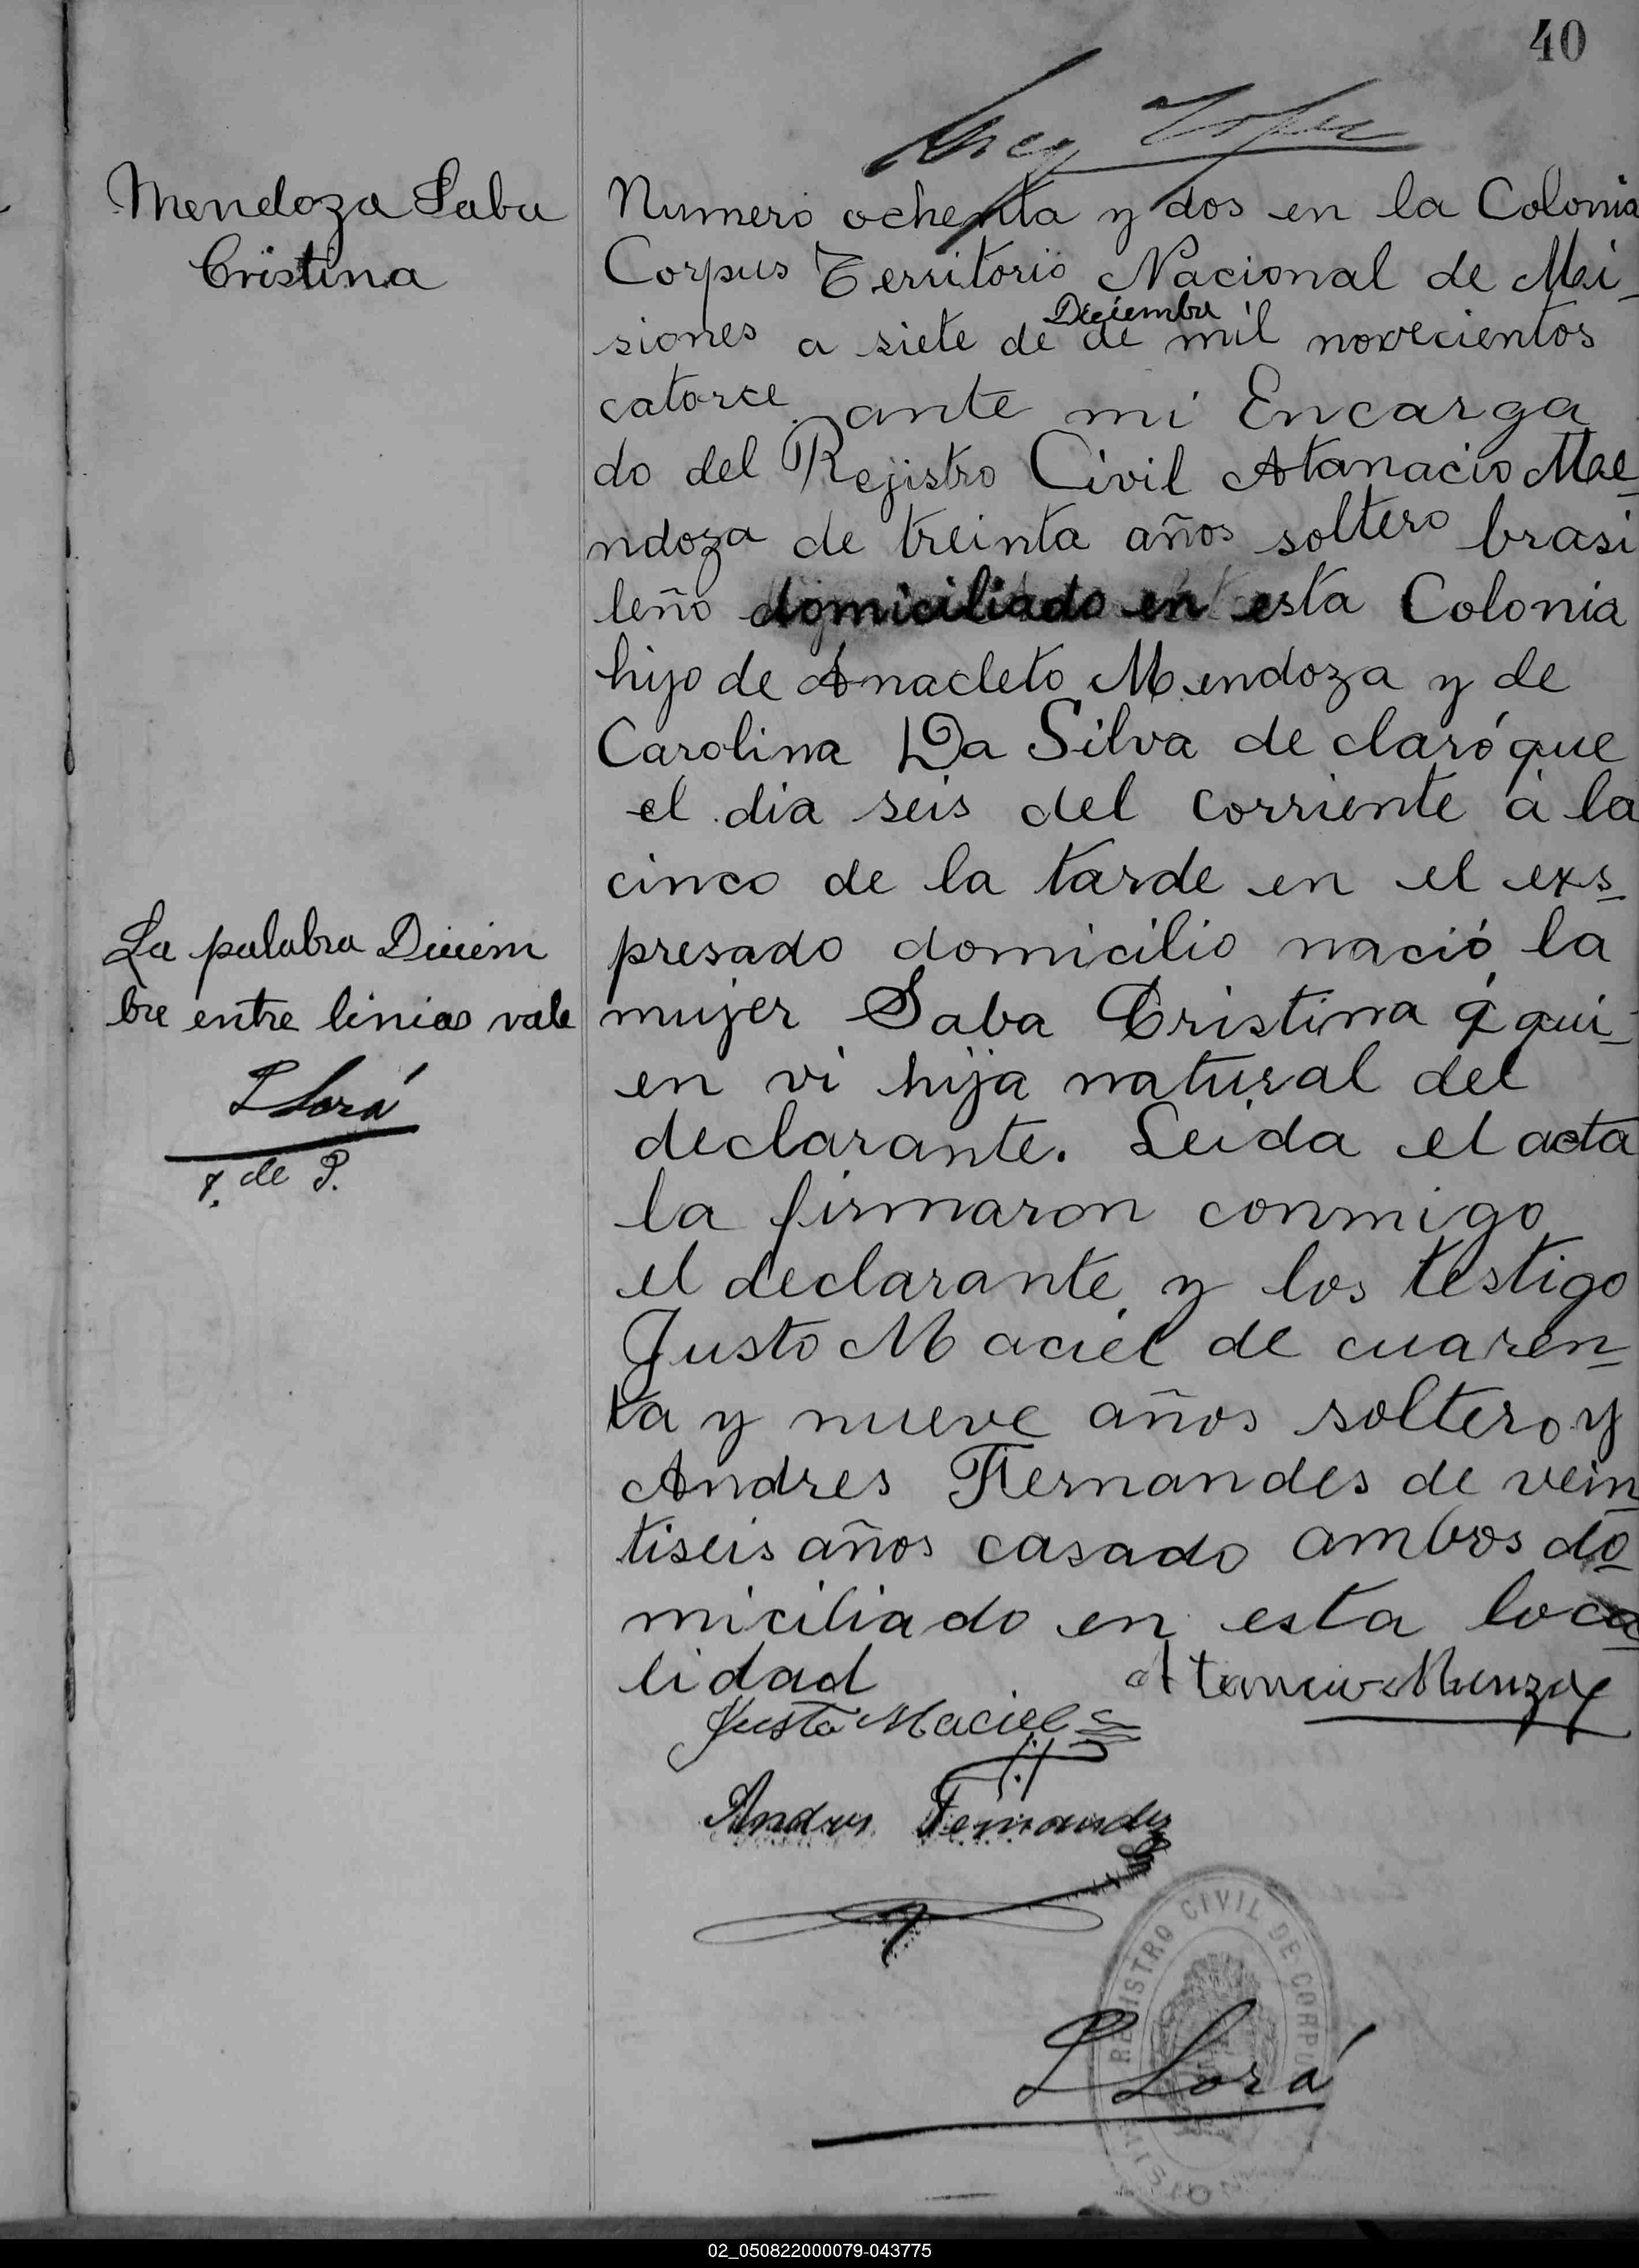 40
Lopez
Mendoza Saba
Cristina
Numero ochenta y dos en la Colonia
Corpus Territorio Nacional de Mi-
siones a siete de Diciembre de mil novecientos
catorce ante mi Encarga
do del Rejistro Civil Atanacio Me-
ndoza de treinta años soltero brasi
leño domiciliado en esta Colonia
hijo de Anacleto Mendoza y de
Carolina Da Silva declaró que
el dia seis del corriente á la
cinco de la tarde en el exs-
presado domicilio nació la
mujer Saba Cristina á qui-
en vi hija natural del
declarante. Leida el acta
la firmaron conmigo
el declarante y los testigo
Justo Maciel de cuaren-
ta y nueve años soltero y
Andres Fernandes de vein
tiseis años casado ambos do-
miciliado en esta loca
lidad
La palabra Diciem
bre entre linias vale
P Lorá
J. de P.
Justo Maciel
Andres Fernandez
REGISTRO CIVIL DE CORPUS
MISIONES
P Lorá
02_050822000079-043775